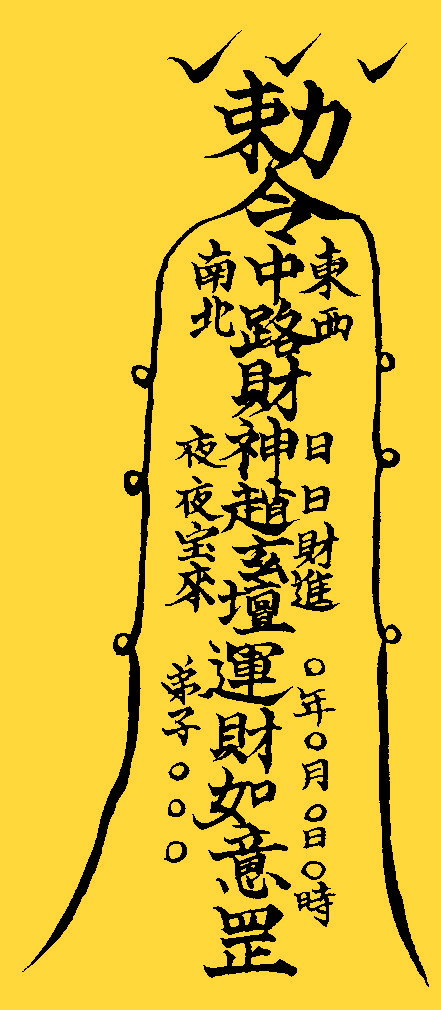 勅令
東西
中路財神趙玄壇運財如意罡
南北
日日財進
夜夜宝來
〇年〇月〇日〇時
弟子〇〇〇